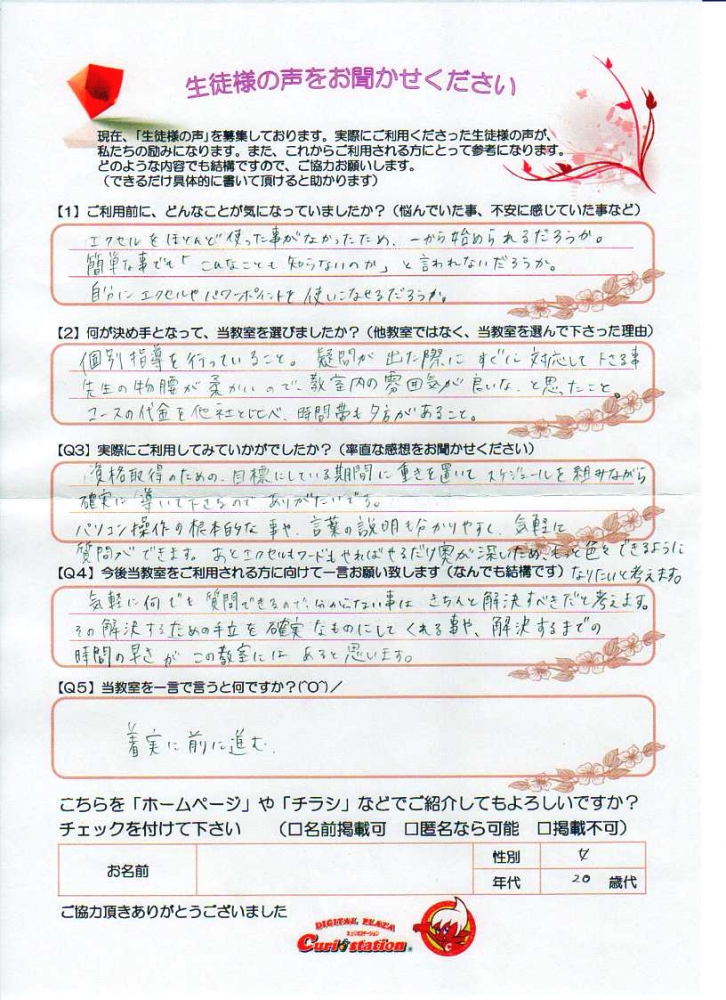 生徒様の声をお聞かせください
現在、「生徒様の声」を募集しております。実際にご利用くださった生徒様の声が、
私たちの励みになります。また、これからご利用される方にとって参考になります。
どのような内容でも結構ですので、ご協力お願いします。
（できるだけ具体的に書いて頂けると助かります）
【1】ご利用前に、どんなことが気になっていましたか？（悩んでいた事、不安に感じていた事など）
エクセルをほとんど使った事がなかったため、一から始められるだろうか。
簡単な事でも「こんなことも知らないのか」と言われないだろうか。
自分にエクセルやパワーポイントを使いこなせるだろうか。
【2】何が決め手となって、当教室を選びましたか？（他教室ではなく、当教室を選んで下さった理由）
個別指導を行っていること。疑問が出た際にすぐに対応して下さる事
先生の物腰が柔かいので、教室内の雰囲気が良いな、と思ったこと。
コースの代金を他社と比べ、時間帯も夕方があること。
【Q3】実際にご利用してみていかがでしたか？（率直な感想をお聞かせください）
資格取得のための、目標にしている期間に重きを置いてスケジュールを組みながら
確実に導いて下さるのでありがたいです。
パソコン操作の根本的な事や、言葉の説明も分かりやすく、気軽に
質問ができます。あとエクセルもワードもやればやるだけ奥が深いため、もっと色々できるように
なりたいと考えます。
【Q4】今後当教室をご利用される方に向けて一言お願い致します（なんでも結構です）
気軽に何でも質問できるので、分からない事はきちんと解決すべきだと考えます。
その解決するための手立を確実なものにしてくれる事や、解決するまでの
時間の早さがこの教室にはあると思います。
【Q5】当教室を一言で言うと何ですか？(^O^)／
着実に前に進む
こちらを「ホームページ」や「チラシ」などでご紹介してもよろしいですか？
チェックを付けて下さい　（□名前掲載可　□匿名なら可能　□掲載不可）
お名前
性別 女
年代 20 歳代
ご協力頂きありがとうございました
DIGITAL PLAZA
Curio station